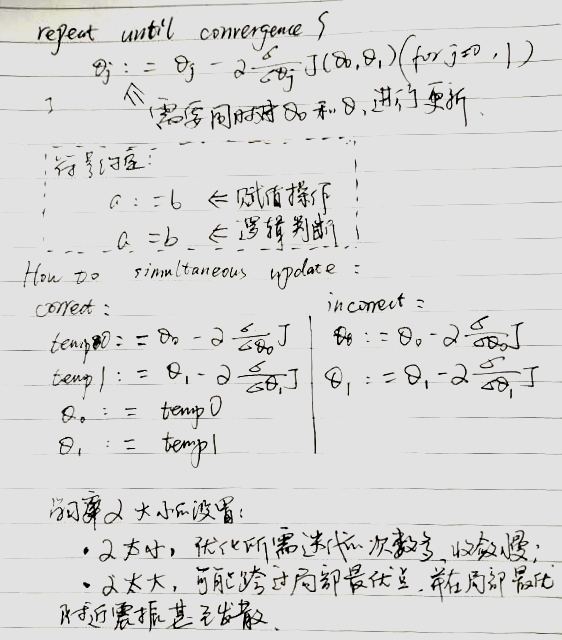 repeat until convergence {
θj := θj - α δ/δθj J(θ0, θ1) (for j=0, 1)
}
⇑ 需要同时对θ0和θ1进行更新.
符号约定:
a := b ⇐ 赋值操作
a = b ⇐ 逻辑判断
How to simultaneous update:
correct:
temp0 := θ0 - α δ/δθ0 J
temp1 := θ1 - α δ/δθ1 J
θ0 := temp0
θ1 := temp1
incorrect:
θ0 := θ0 - α δ/δθ0 J
θ1 := θ1 - α δ/δθ1 J
学习率α大小的设置:
·α太小, 优化所需迭代的次数多, 收敛慢;
·α太大, 可能跨过局部最优点, 并在局部最优
附近震振甚至发散.